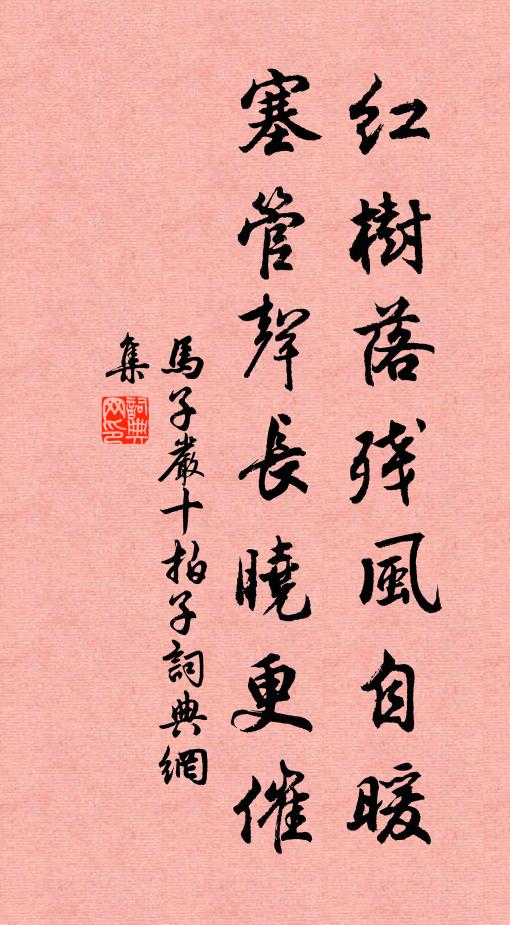 紅樹落残風自暖
塞管聲長曉更催
馬子嚴十拍子詞典網
集
詞典网印